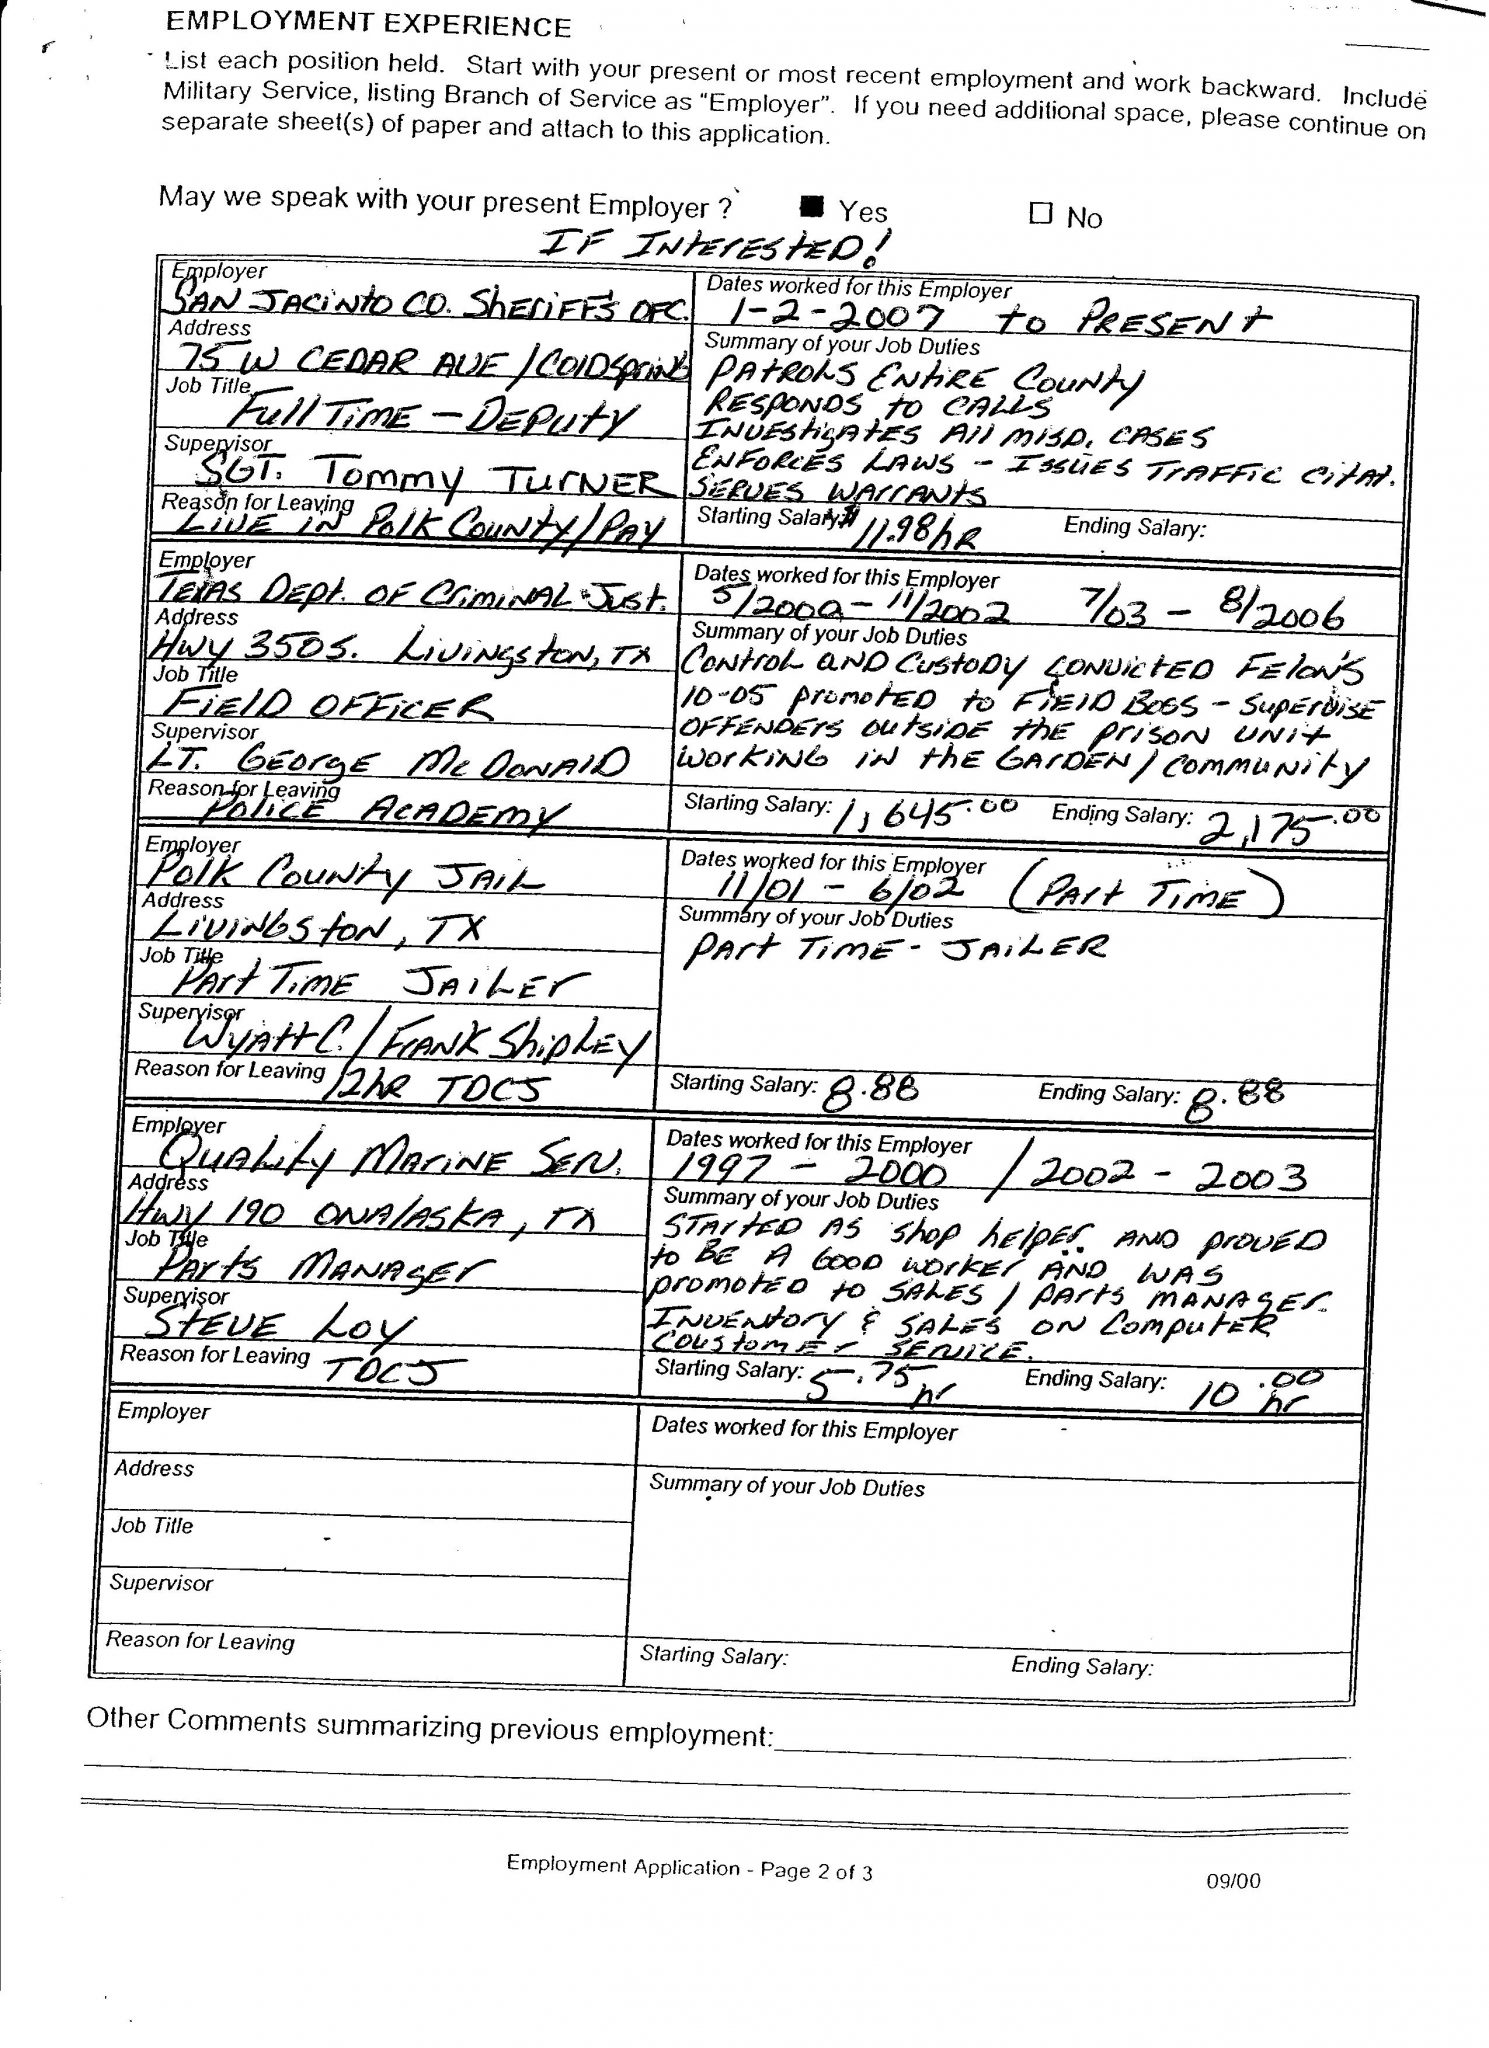 EMPLOYMENT EXPERIENCE
List each position held. Start with your present or most recent employment and work backward. Include
Military Service, listing Branch of Service as "Employer". If you need additional space, please continue on
separate sheet(s) of paper and attach to this application.
May we speak with your present Employer ? ■ Yes □ No
IF INTERESTED!
Employer
SAN JACINTO CO. SHERIFF'S OFC.
Dates worked for this Employer
1-2-2007 to PRESENT
Address
75 W CEDAR AVE / COLDSPRING
Job Title
Full TIME - DEPUTY
Supervisor
SGT. TOMMY TURNER
Reason for Leaving
LIVE IN POLK COUNTY/PAY
Summary of your Job Duties
PATROLS ENTIRE COUNTY
RESPONDS to CALLS
INVESTIGATES All MISD. CASES
ENFORCES LAWS - ISSUES TRAFFIC CITAT.
SERVES WARRANTS
Starting Salary: $11.98/hR Ending Salary:
Employer
TEXAS DEPT. OF CRIMINAL JUST.
Dates worked for this Employer
5/2000 - 11/2002 7/03 - 8/2006
Address
Hwy 350S. LIVINGSTON, TX
Job Title
FIELD OFFICER
Supervisor
LT. GEORGE McDONALD
Reason for Leaving
POLICE ACADEMY
Summary of your Job Duties
CONTROL AND CUSTODY CONVICTED FELON'S
10-05 PROMOTED to FIELD BOSS - SUPERVISE
OFFENDERS OUTSIDE the PRISON UNIT
WORKING IN the GARDEN / COMMUNITY
Starting Salary: 1,645.00 Ending Salary: 2,175.00
Employer
POLK COUNTY JAIL
Dates worked for this Employer
11/01 - 6/02 (PART TIME)
Address
LIVINGSTON, TX
Job Title
PART TIME JAILER
Supervisor
WYATT C. / FRANK SHIPLEY
Reason for Leaving 12hR TDCJ
Summary of your Job Duties
PART TIME - JAILER
Starting Salary: 8.88 Ending Salary: 8.88
Employer
QUALITY MARINE SERV.
Dates worked for this Employer
1997 - 2000 / 2002 - 2003
Address
Hwy 190 ONALASKA, TX
Job Title
PARTS MANAGER
Supervisor
STEVE LOY
Reason for Leaving TDCJ
Summary of your Job Duties
STARTED AS SHOP helper AND PROVED
to BE A GOOD WORKER AND WAS
PROMOTED to SALES / PARTS MANAGER.
INVENTORY & SALES ON COMPUTER
COUSTOMER SERVICE.
Starting Salary: 5.75 hr Ending Salary: 10.00 hr
Employer
Dates worked for this Employer
Address
Job Title
Supervisor
Reason for Leaving
Summary of your Job Duties
Starting Salary: Ending Salary:
Other Comments summarizing previous employment:
Employment Application - Page 2 of 3
09/00